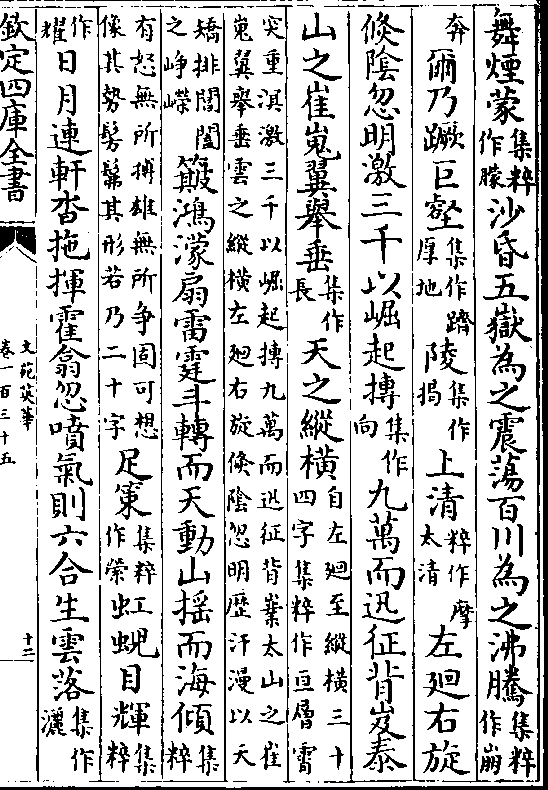 舞煙蒙集粹作朦沙昏五嶽為之震蕩百川為之沸騰集粹作崩
奔爾乃蹶巨壑集作躋厚地陵集作揭上清粹作摩太清左廻右旋
倐陰忽明激三千以崛起摶集作向九萬而迅征背岌泰
山之崔嵬翼舉垂集作長天之縱横自左廻至縱横三十四字集粹作亘層霄
突重溟激三千以崛起摶九萬而迅征背嶪太山之崔
嵬翼舉垂雲之縱横左廻右旋倐陰忽明歴汗漫以天
矯排閶闔之峥嶸簸鴻濛扇雷霆斗轉而天動山揺而海傾集粹
有怒無所搏雄無所争固可想像其勢髣髴其形若乃二十字足策集粹作縈虹蜺目輝集粹
作耀日月連軒沓拖揮霍翕忽噴氣則六合生雲落集作灑
欽定四庫全書
文苑英華
卷一百三十五
十二